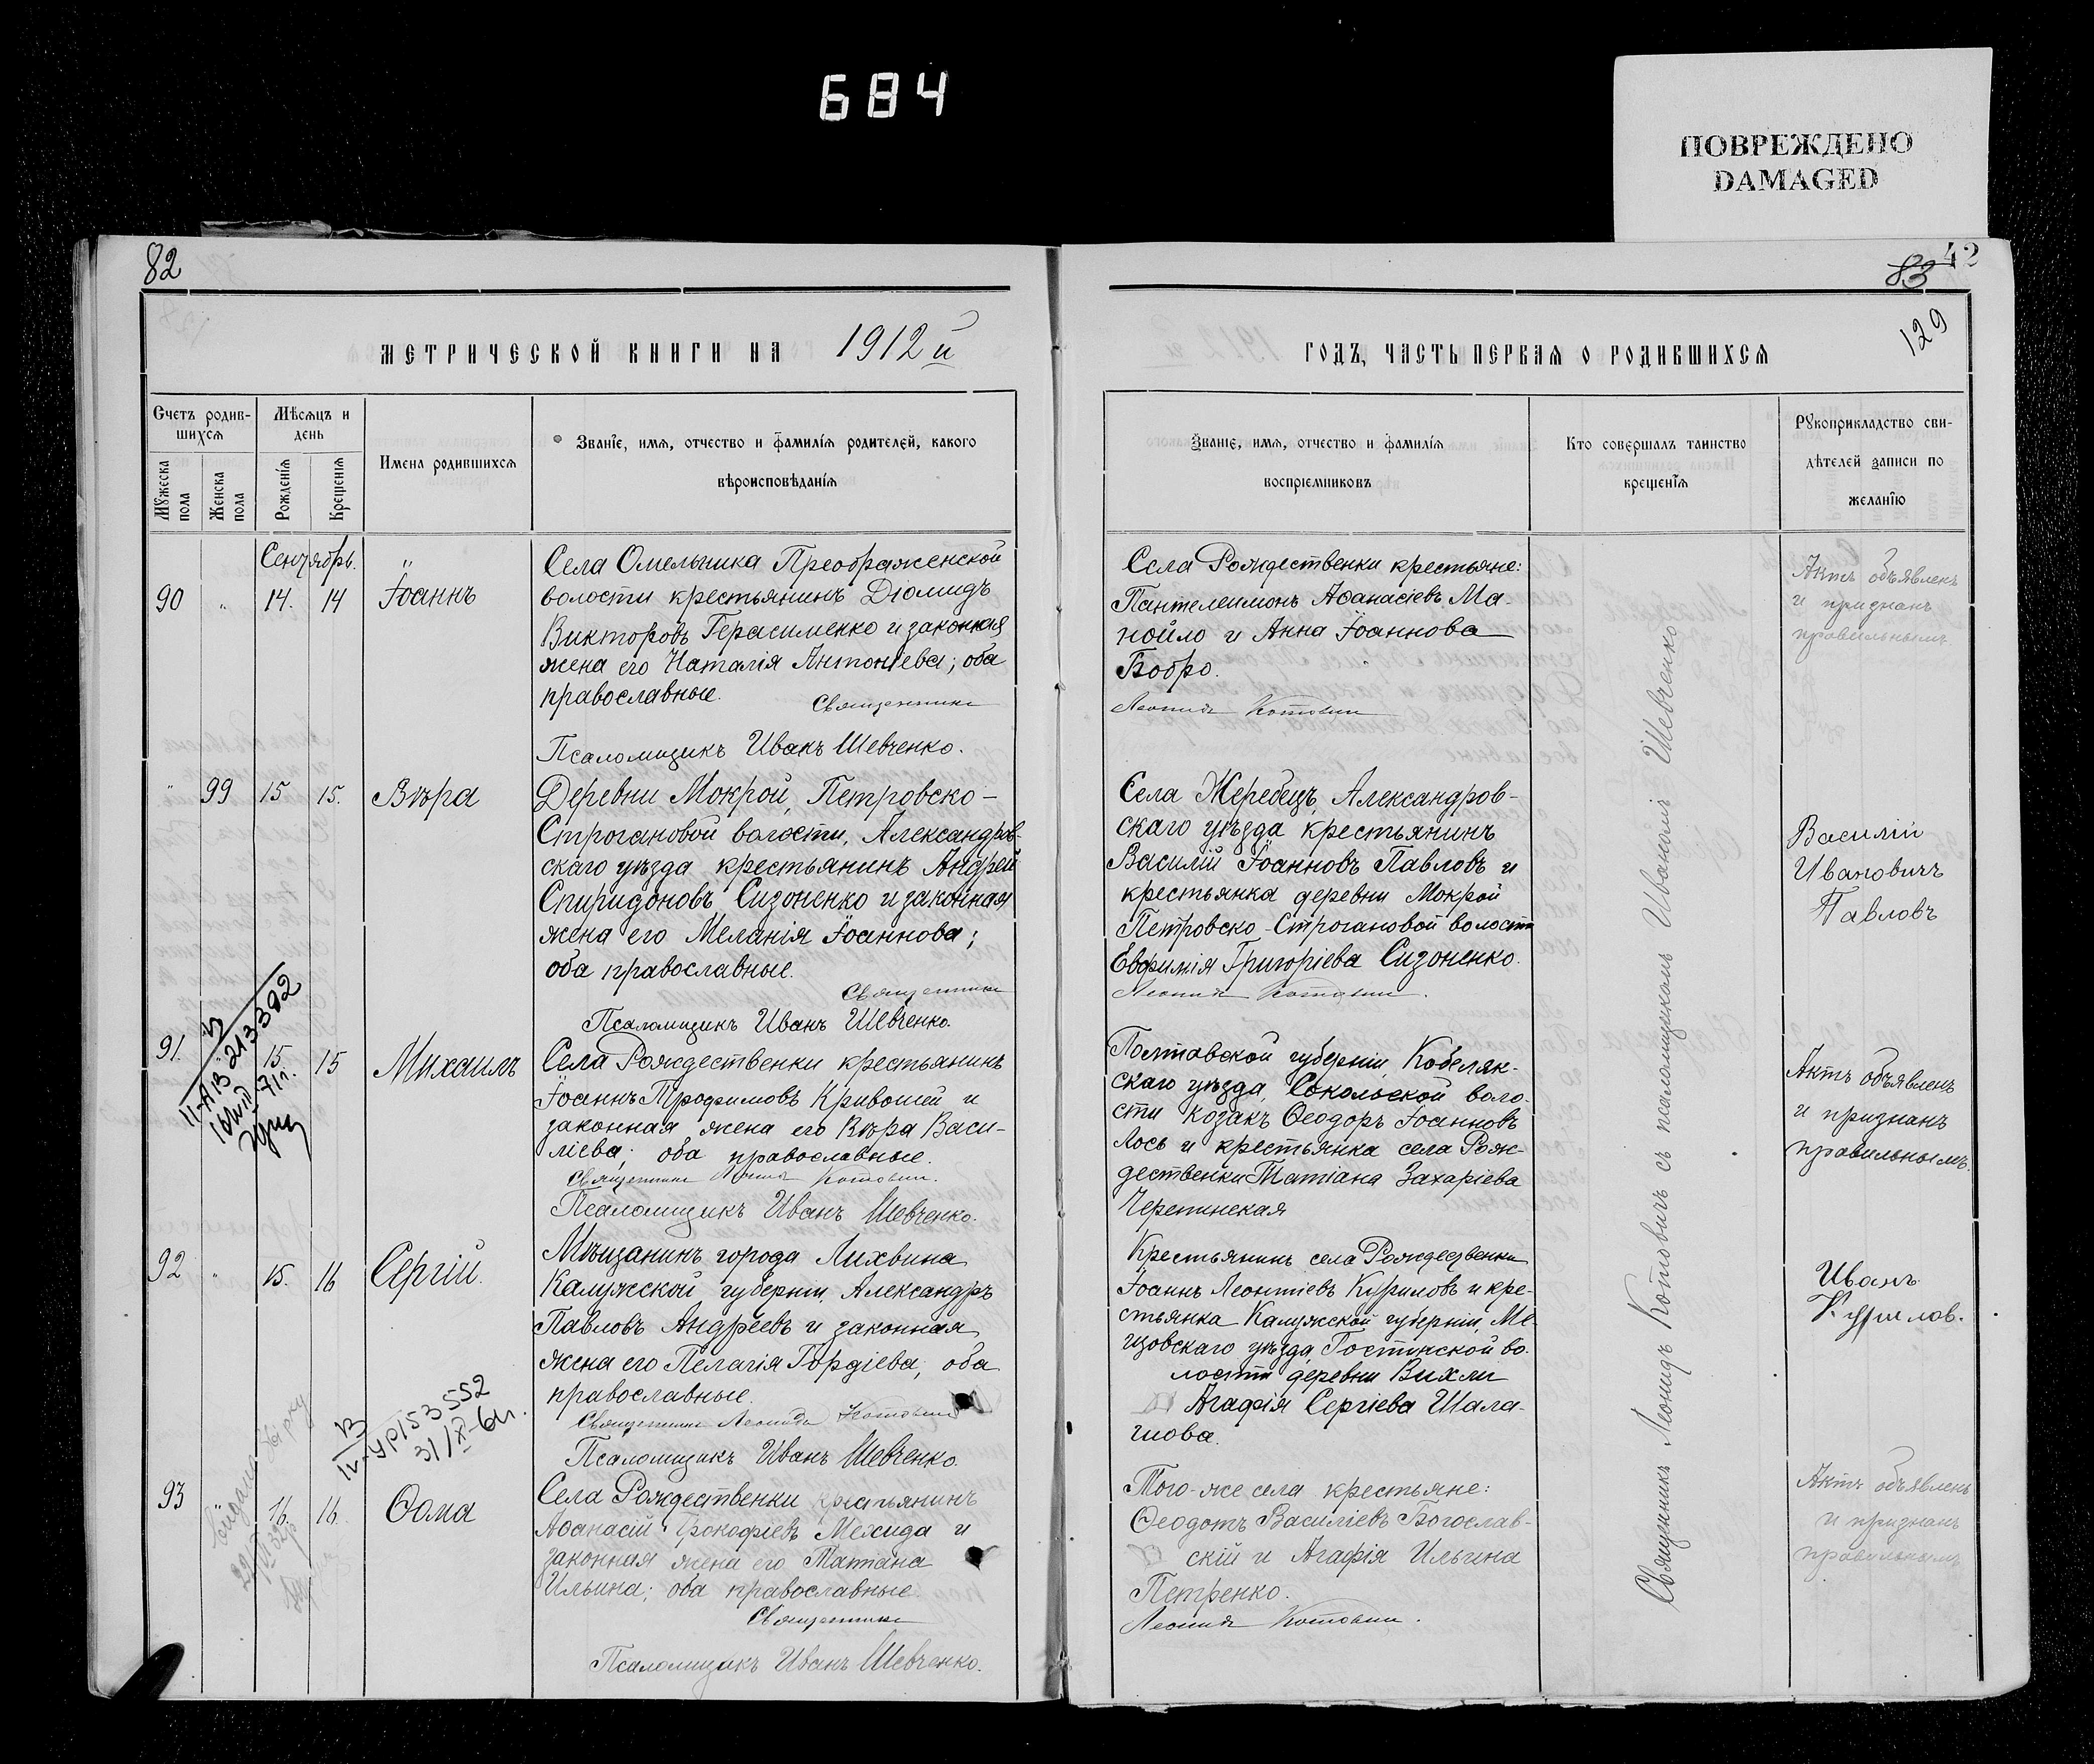 684
ПОВРЕЖДЕНО
DAMAGED
82
МЕТРИЧЕСКОЙ КНИГИ НА 1912й
Счетъ родив-
шихся
Мѣсяцъ и
день
Мужеска
пола
Женска
пола
Рожденія
Крещенія
Имена родившихся
Званіе, имя, отчество и фамилія родителей, какого
вѣроисповѣданія
Сентябрь.
90 " 14. 14 Іоаннъ
Села Омельника Преображенской
волости крестьянинъ Діомидъ
Викторовъ Герасименко и законная
жена его Наталія Антоніева; оба
православные.
Священникъ
Псаломщикъ Иванъ Шевченко.
" 99 15 15. Вѣра
Деревни Мокрой, Петровско-
Строгановой волости, Александров-
скаго уѣзда крестьянинъ Андрей
Спиридоновъ Сизоненко и законная
жена его Меланія Іоаннова;
оба православные.
Священникъ
Псаломщикъ Иванъ Шевченко.
91. 15. 15 Михаилъ
213382
Села Рождественки крестьянинъ
Іоаннъ Трофимовъ Кривошей и
законная жена его Вѣра Васи-
ліева; оба православные.
Священникъ Леонидъ Котовичъ.
Псаломщикъ Иванъ Шевченко.
92 " 15. 16 Сергій.
Мѣщанинъ города Лихвина
Калужской губерніи, Александръ
Павловъ Андреевъ и законная
жена его Пелагія Гордіева; оба
православные.
Священникъ Леонидъ Котовичъ
Псаломщикъ Иванъ Шевченко.
153552
93 " 16. 16. Ѳома
Села Рождественки крестьянинъ
Аѳанасій Прокофіевъ Мехида и
законная жена его Татіана
Ильина; оба православные.
Священникъ
Псаломщикъ Иванъ Шевченко.
83 42
129
ГОДЪ, ЧАСТЬ ПЕРВАЯ О РОДИВШИХСЯ
Званіе, имя, отчество и фамилія
воспріемниковъ
Кто совершалъ таинство
крещенія
Рукоприкладство сви-
дѣтелей записи по
желанію
Села Рождественки крестьяне:
Пантелеимонъ Аѳанасіевъ Ма-
нойло и Анна Іоаннова
Бобро.
Леонидъ Котовичъ
Села Жеребецъ, Александров-
скаго уѣзда крестьянинъ
Василій Іоанновъ Павловъ и
крестьянка деревни Мокрой
Петровско-Строгановой волости
Евфимія Григоріева Сизоненко.
Леонидъ Котовичъ.
Полтавской губерніи, Кобеляк-
скаго уѣзда, Сокольской воло-
сти козакъ Ѳеодоръ Іоанновъ
Лось и крестьянка села Рож-
дественки Татіана Захаріева
Черепинская
Крестьянинъ села Рождественки
Іоаннъ Леонтіевъ Куриловъ и кре-
стьянка Калужской губерніи, Ме-
щовскаго уѣзда, Гостинской во-
лости деревни Вихли
Агафія Сергіева Шала-
шова.
Того-же села крестьяне:
Ѳеодотъ Василіевъ Богослав-
скій и Агафія Ильина
Петренко.
Леонидъ Котовичъ.
Священникъ Леонидъ Котовичъ съ псаломщикомъ Иваномъ Шевченко
Актъ объявленъ
и признанъ
правильнымъ
Василій
Ивановичъ
Павловъ
Актъ объявленъ
и признанъ
правильнымъ.
Иванъ
Курилов.
Актъ объявленъ
и признанъ
правильнымъ